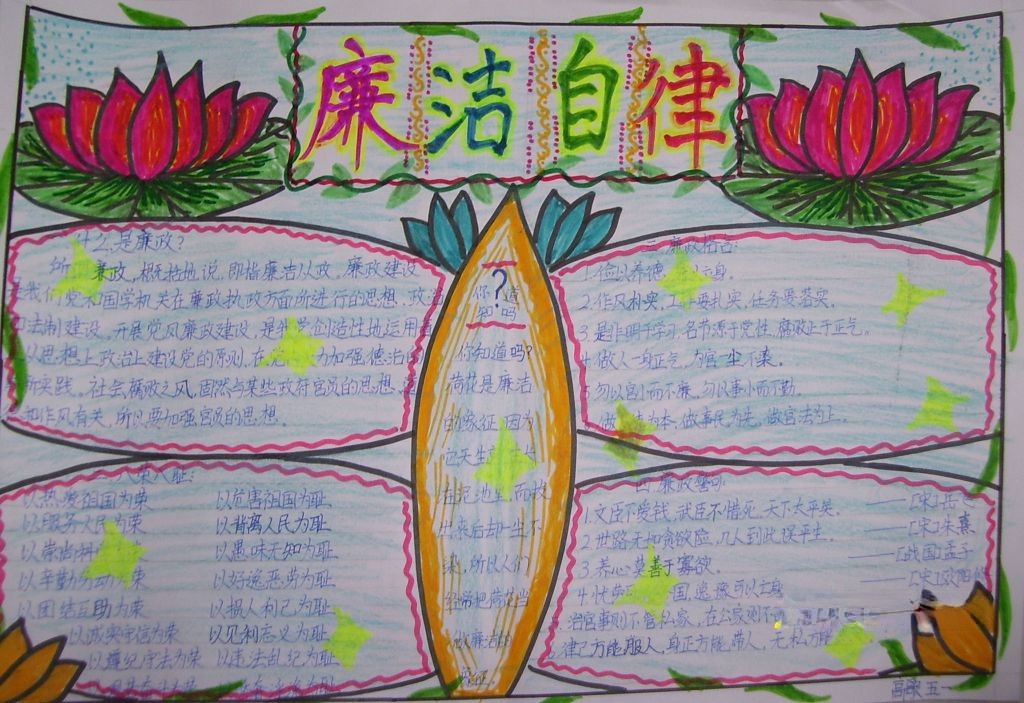 廉洁自律
什么是廉政?
所 廉政,根本地说,即指廉洁以政,廉政建设
我们党和国家机关在廉政执政方面所进行的思想、政治
法制建设。开展党风廉政建设,是 党创造性地运用
以思想上政治上建设党的原则,在党 力加强德治的
新实践。社会腐败之风,固然与某些政府官员的思想、道
和作风有关,所以要加强官员的思想。
八荣八耻:
以热爱祖国为荣 以危害祖国为耻
以服务人民为荣 以背离人民为耻
以崇尚 以愚昧无知为耻
以辛勤劳动 荣 以好逸恶劳为耻
以团结互助为荣 以损人利己为耻
以诚实守信为荣 以见利忘义为耻
以遵纪守法为荣 以违法乱纪为耻
?
你 道
知 吗
你知道吗?
荷花是廉洁
的象征,因为
它天生
在泥地里,而放
出来后却一尘不
染,所以人们
经常把荷花当
做廉洁的
象征。
三、廉政格言:
1.俭以养德, 立身。
2.作风朴实,工作要扎实,任务要落实。
3.是非明于学习,名节源于党性,腐败止于正气。
4.做人一身正气,为官一尘不染。
5.勿以官小而不廉,勿以事小而不勤。
做 为本,做事民为先,做官法为上。
四、廉政警句:
1.文臣不爱钱,武臣不惜死,天下太平矣。 ——[宋]岳飞
2.世路无如贪欲险,几人到此误平生。 ——[宋]朱熹
3.养心莫善于寡欲。 ——[战国]孟子
4.忧劳 国,逸豫可以亡身 ——[宋]欧阳修
5.治官事则不营私家,在公家则不
律己方能服人,身正方能带人,无私方能
五一